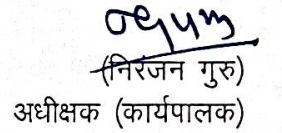 (निरंजन गुरु)
अधीक्षक (कार्यपालक)